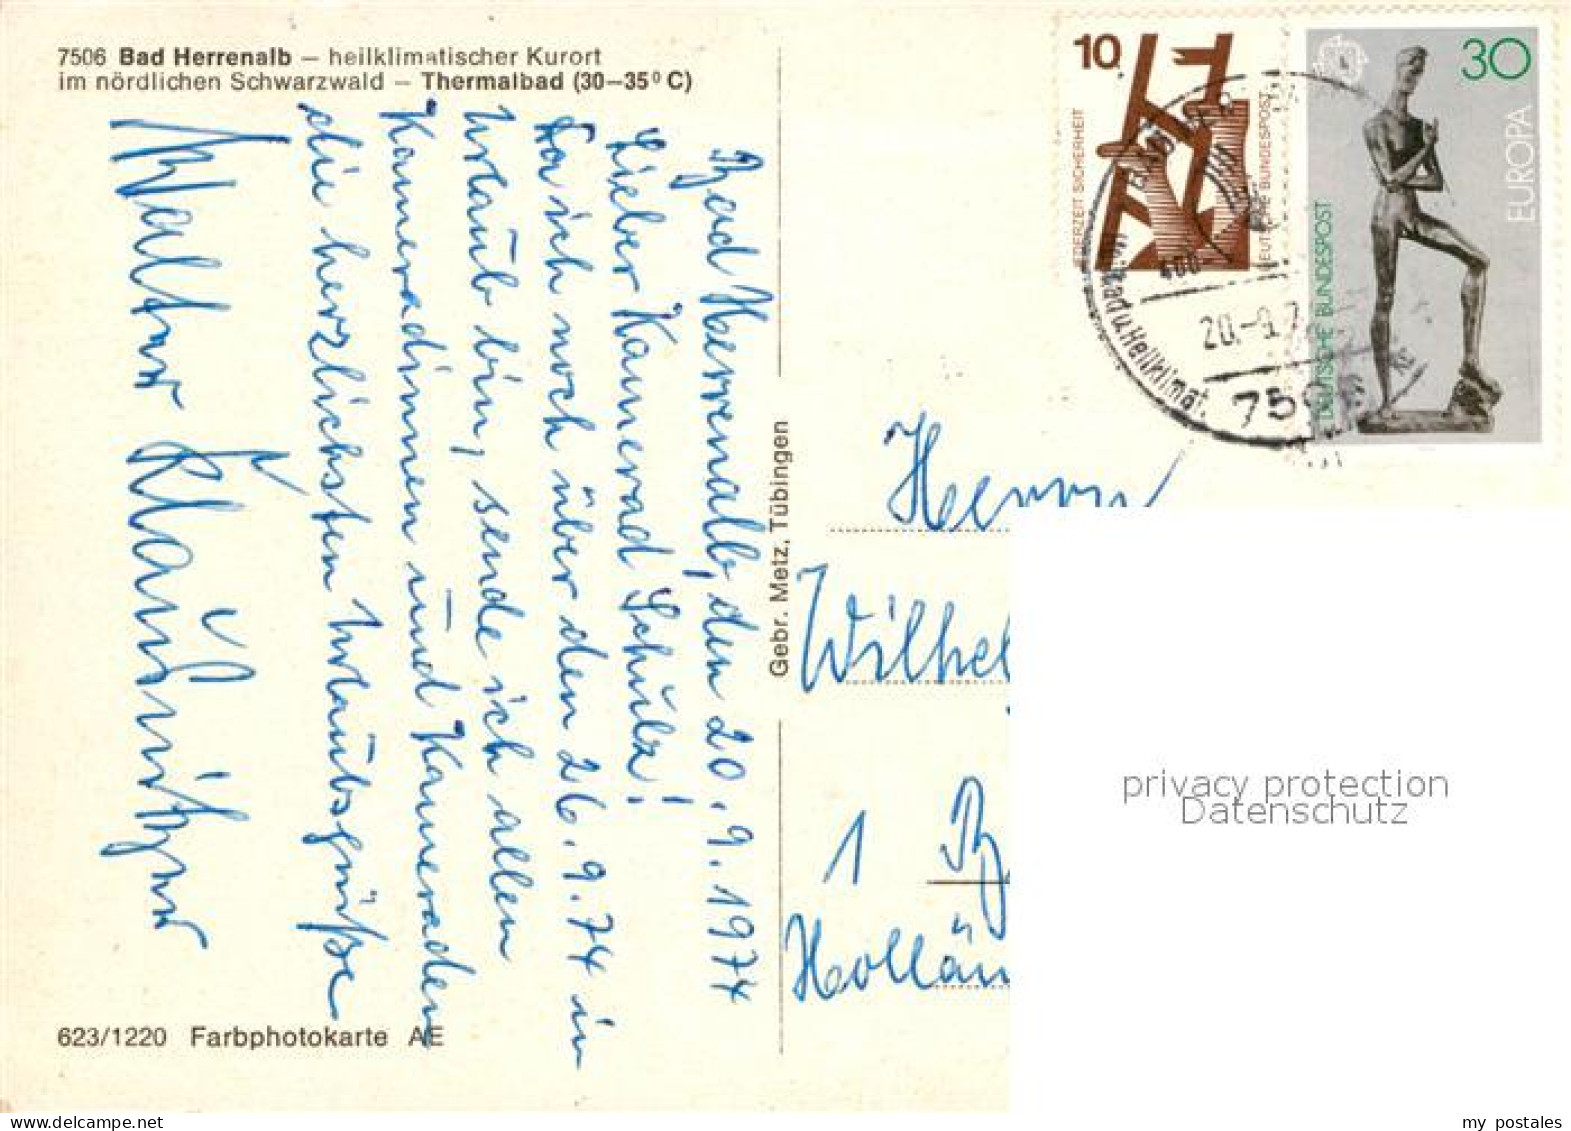 7506 Bad Herrenalb – heilklimatischer Kurort
im nördlichen Schwarzwald – Thermalbad (30–35° C)
Bad Herrenalb, den 20. 9. 1974
Lieber Kamerad Schulz!
Da ich noch über den 26. 9. 74 in
Urlaub bin, sende ich allen
Kameradinnen und Kameraden
die herzlichsten Urlaubsgrüße
Walter
623/1220 Farbphotokarte AE
Gebr. Metz, Tübingen
10
JEDERZEIT SICHERHEIT
DEUTSCHE BUNDESPOST
30
EUROPA
DEUTSCHE BUNDESPOST
20.-9.7
750
Herrn
Wilhel
1 B
Hollän
privacy protection
Datenschutz
my_postales